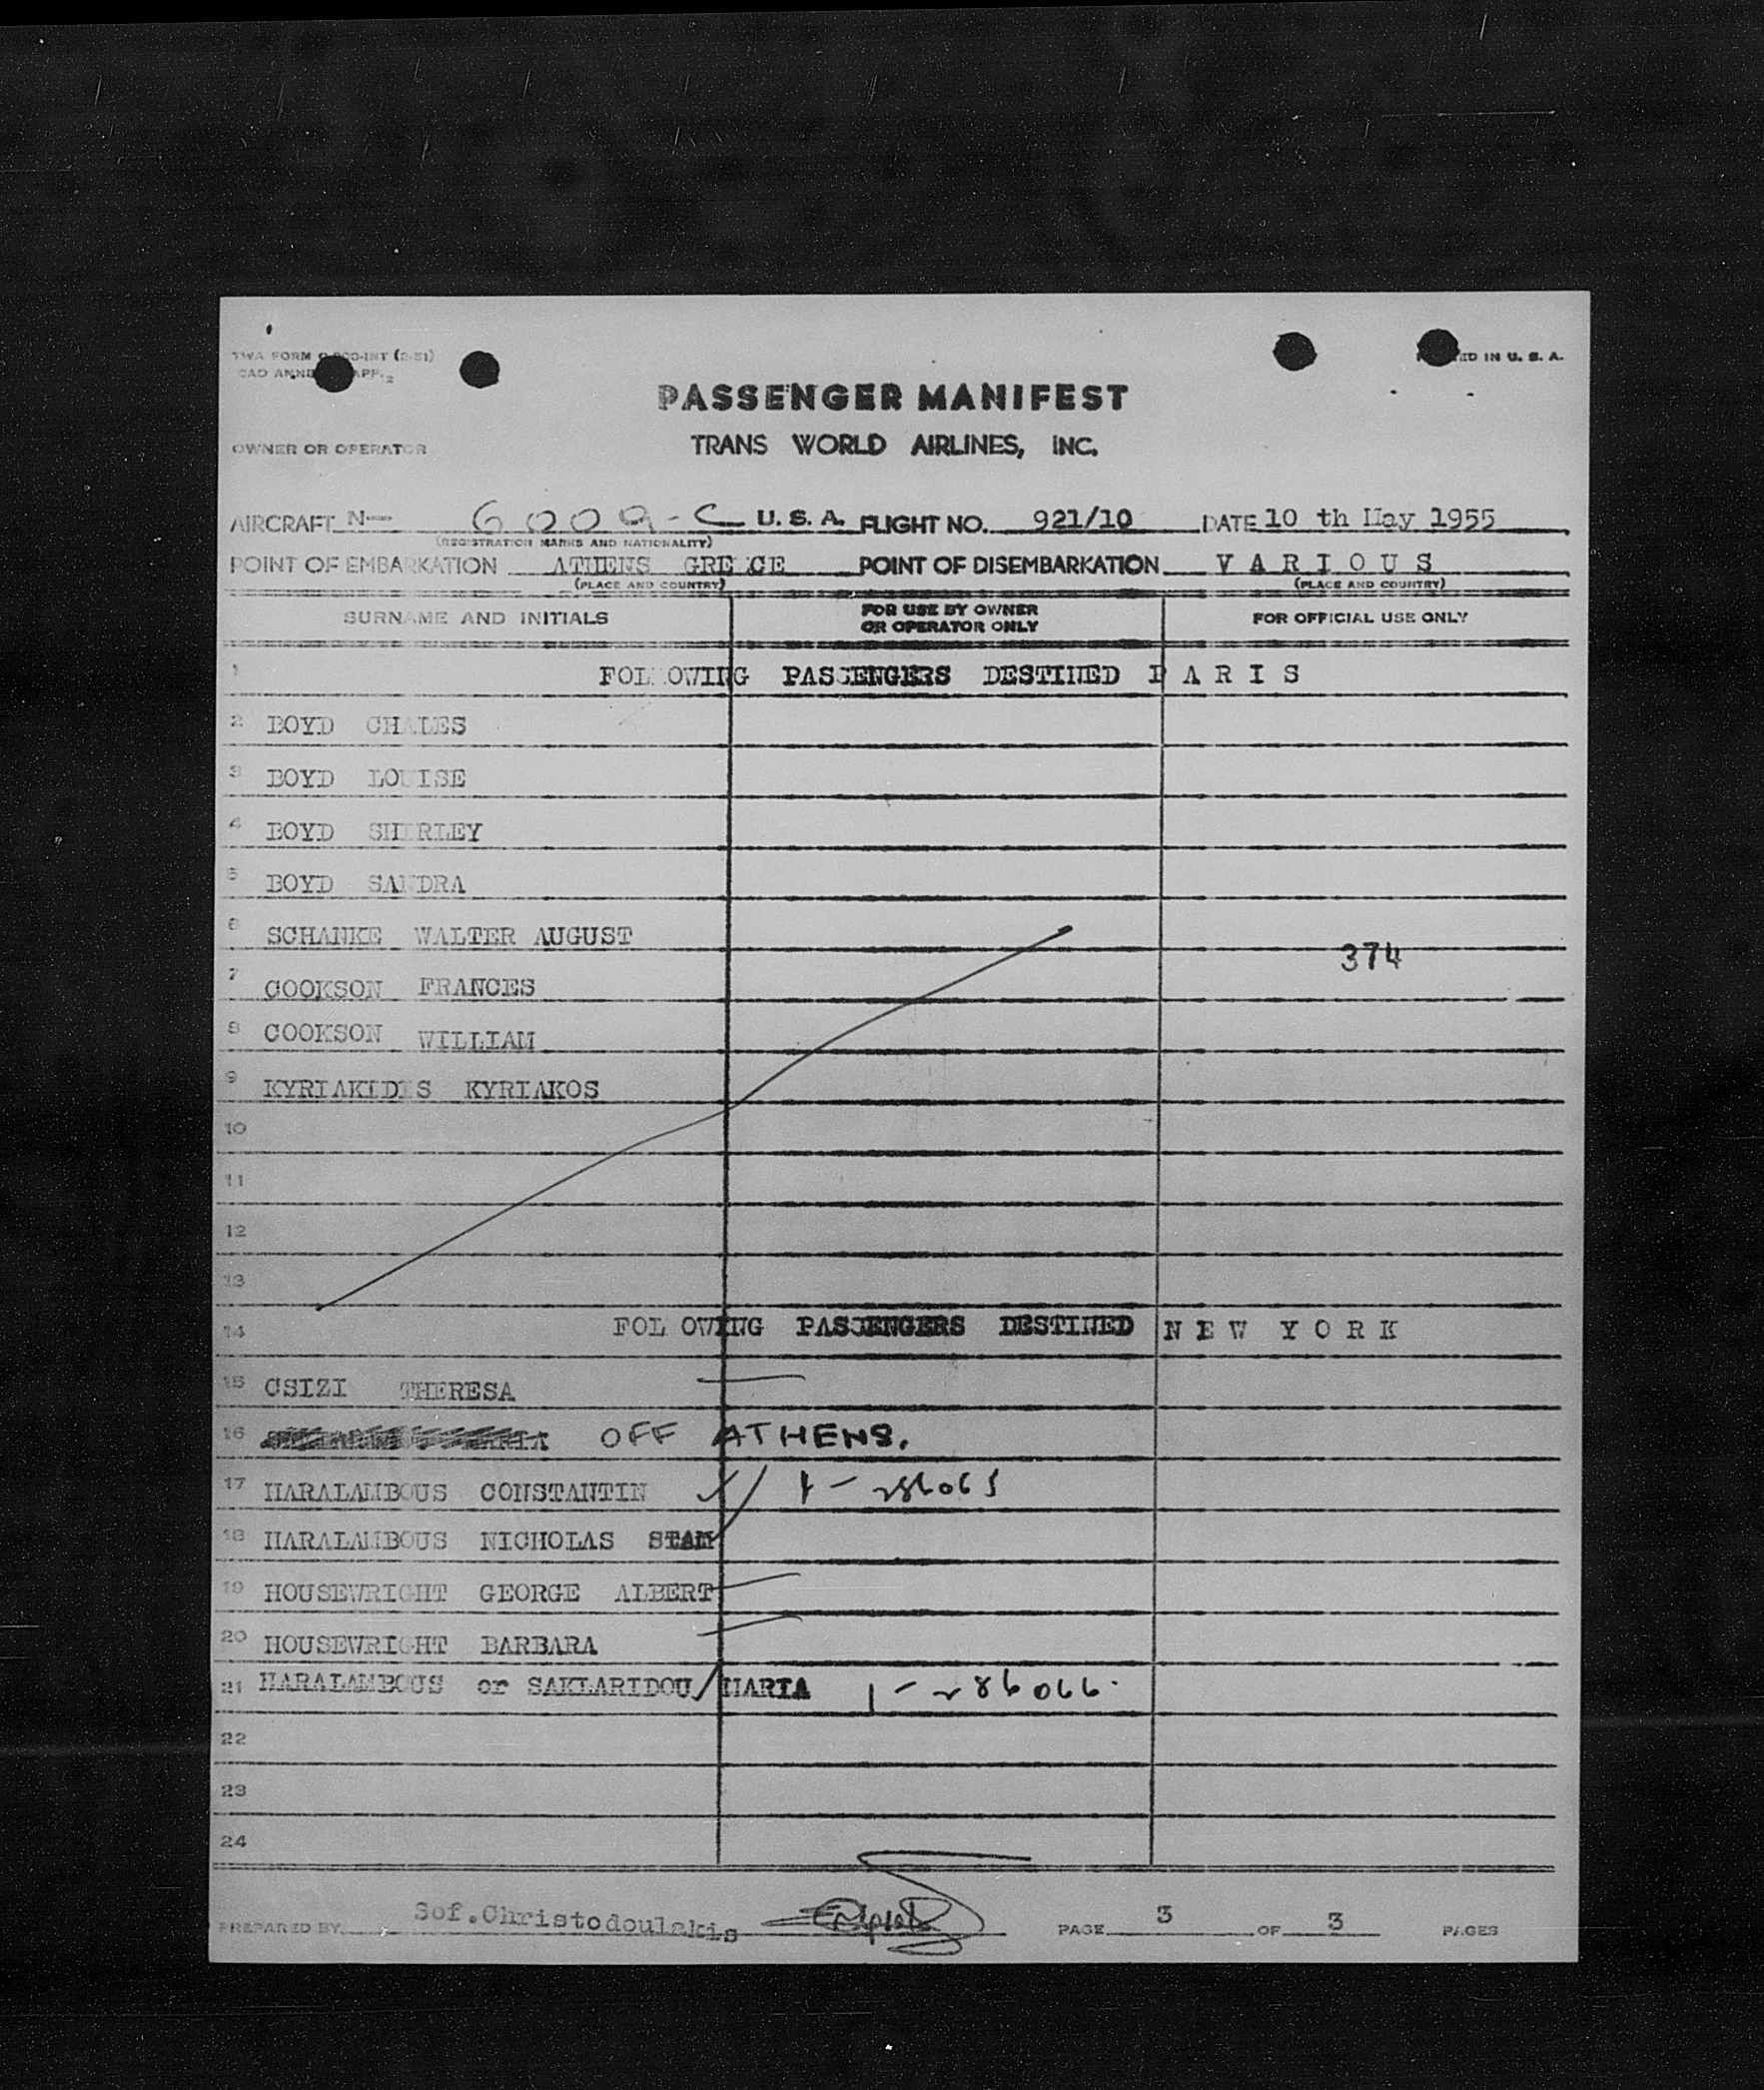 TWA FORM
PRINTED IN U. S. A.
PASSENGER MANIFEST
OWNER OR OPERATOR
TRANS WORLD AIRLINES, INC.
AIRCRAFT N- 6009-C U. S. A. FLIGHT NO. 921/10 DATE 10 th May 1955
(REGISTRATION MARKS AND NATIONALITY)
POINT OF EMBARKATION ATHENS GREECE POINT OF DISEMBARKATION V A R I O U S
(PLACE AND COUNTRY) (PLACE AND COUNTRY)
SURNAME AND INITIALS FOR USE BY OWNER OR OPERATOR ONLY FOR OFFICIAL USE ONLY
1 FOLLOWING PASSENGERS DESTINED P A R I S
2 BOYD CHALES
3 BOYD LOUISE
4 BOYD SHIRLEY
5 BOYD SANDRA
6 SCHANKE WALTER AUGUST
374
7 COOKSON FRANCES
8 COOKSON WILLIAM
9 KYRIAKIDIS KYRIAKOS
10
11
12
13
14 FOLLOWING PASSENGERS DESTINED N E W Y O R K
15 CSIZI THERESA
16 OFF ATHENS.
17 HARALAMBOUS CONSTANTIN 1-286065
18 HARALAMBOUS NICHOLAS STAM
19 HOUSEWRIGHT GEORGE ALBERT
20 HOUSEWRIGHT BARBARA
21 HARALAMBOUS or SAKLARIDOU/MARIA 1-286066.
22
23
24
PREPARED BY Sof.Christodoulakis PAGE 3 OF 3 PAGES